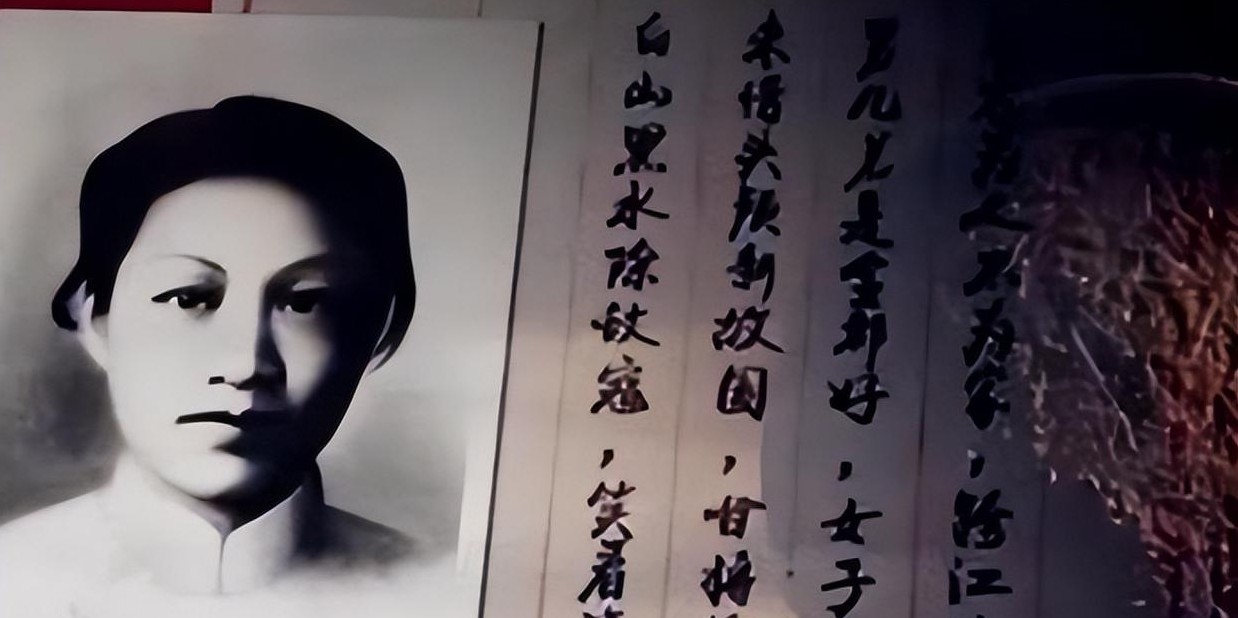 为人不为家，跨江
男儿岂是全都好，女子
未惜头颅新故国，甘将
白山黑水除敌寇，笑看